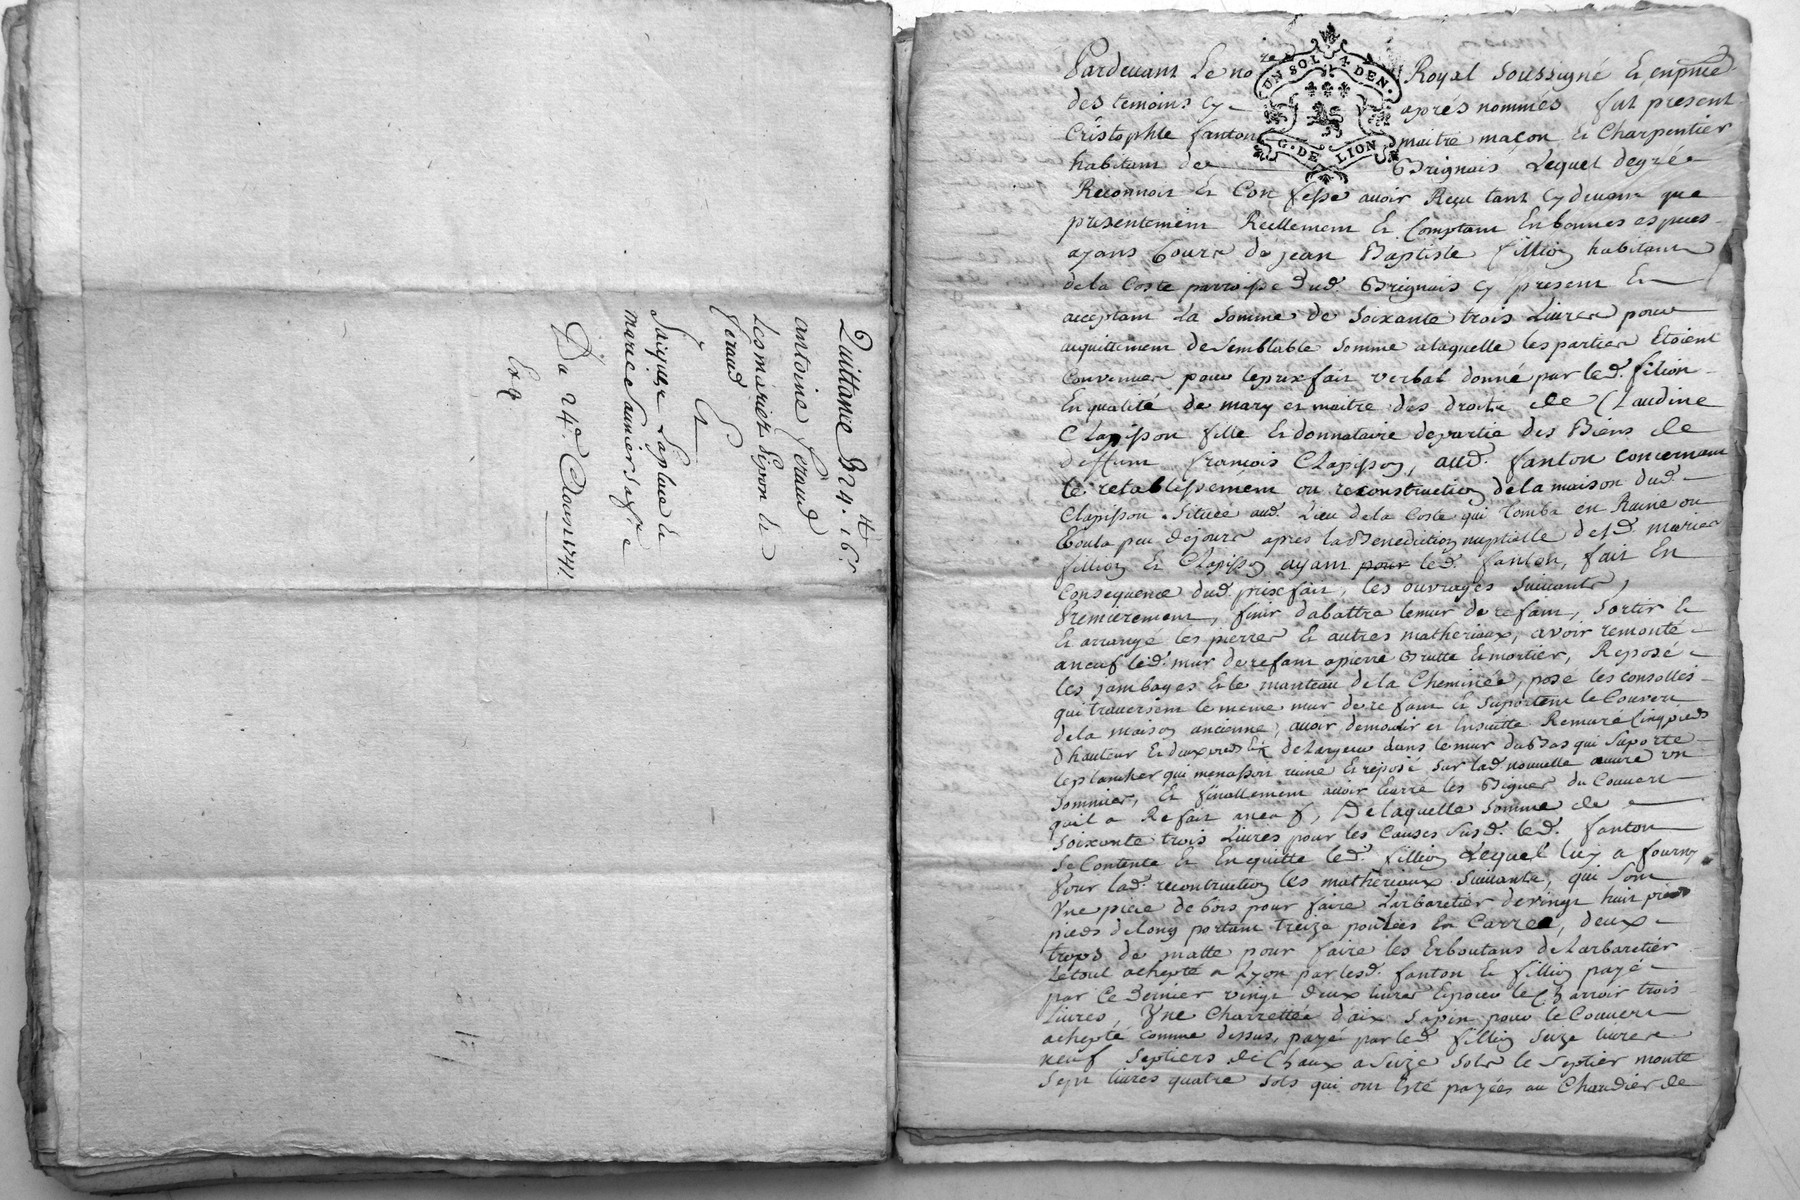 Quittance De 24.ᵗᵗ 16ˢ
antoine feraud
Les mariez
feraud
Et
Laplace &
marie
Du 24ᵉ. Aoust 1741.
Exp
UN SOL 4 DEN.
G. DE LION
Pardevant Le no.re Royal soussigné et en pñce
des temoins cy aprés nommés fut present
Cristophle fanton maitre maçon et Charpentier
habitant de Brignais Lequel degré
Reconnoit et Confesse avoir Reçu tant cy devant que
presentement Reellement et Comptant En bonnes especes
ayans Cours de jean Baptiste fillion habitant
dela Coste parroisse dud. Brignais cy present Et
acceptant La Somme de Soixante trois Livres pour
acquittement de semblable somme a laquelle les parties Etoient
Convenues pour le prix fait verbal donné par led. fillion
En qualité de mary et maitre des droits de Claudine
Clapisson fille et donnataire de partie des Biens de
deffunt françois Clapisson, aud. fanton concernant
le retablissement ou reconstruction de la maison dud.
Clapisson Située aud. Lieu de la Coste qui Tomba en Ruine ou
Croula peu de jours aprés la Benediction nuptialle desd. mariés
fillion et Clapisson ayant pour led. fanton, fait En
Consequence dud. prix fait, les ouvrages suivants,
Premierement, finir d'abattre le mur de refant, Sortir et
Et arrangé les pierres et autres matheriaux, avoir remonté
a neuf led. mur de refant a pierre Brutte Et mortier, Reposé
les jambages Et le manteau de la Cheminée, posé les consolles
qui traversent le meme mur de refant et Suportent le Couvert
de la maison ancienne, avoir demolir et Ensuitte Remuré Cinq pieds
d'hauteur Et deux pieds de Largeur dans le mur du Bas qui Suporte
le plancher qui menassoit ruine Et reposé Sur lad. nouvelle œuvre un
Sommier, Et finallement avoir les Bignes du Couvert
qu'il a Refait a neuf, De laquelle Somme de
Soixante trois Livres pour les Causes Susd. led. fanton
Se Contente et En quitte led. fillion Lequel luy a fourny
Pour lad. recontruction les matheriaux Suivants, qui Sont
Une piece de bois pour faire Larbaretier de vingt huit pieds
pieds de long portant treize pouces En Carrée, deux
trops de matte pour faire les Erboutans de Larbaretier
Le tout achepté a Lyon par lesd. fanton et fillion payé
par Ce Dernier vingt deux livres Et pour le Charroir trois
Livres, Une Charrettée d'aix Sapin pour le Couvert
achepté comme dessus, payé par led. fillion Seize livres
neuf Septiers de Chaux a Seize Sols le Septier monte
Sept livres quatre Sols qui ont Eté payées au Chaudier de